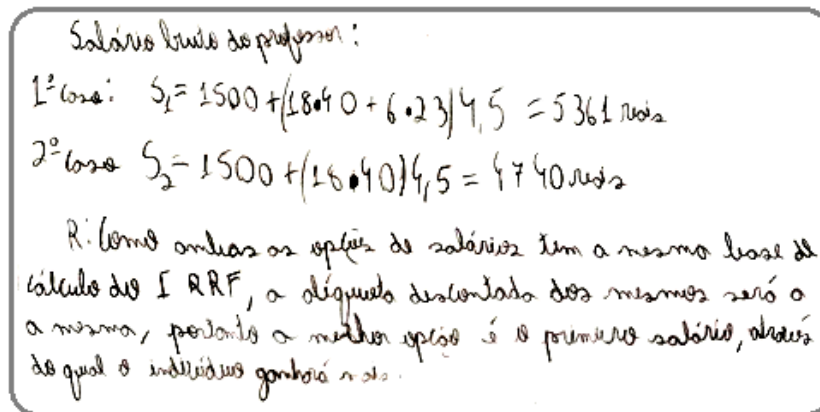 Salário bruto do professor:
1º caso: S₁ = 1500 + (18•40 + 6•23)4,5 = 5361 reais
2º caso S₂ = 1500 + (18•40)4,5 = 4740 reais
R: Como ambas as opções de salários tem a mesma base de
cálculo do IRRF, a alíquota descontada dos mesmos será a
a mesma, portanto a melhor opção é o primeiro salário, através
do qual o indivíduo ganhará mais.